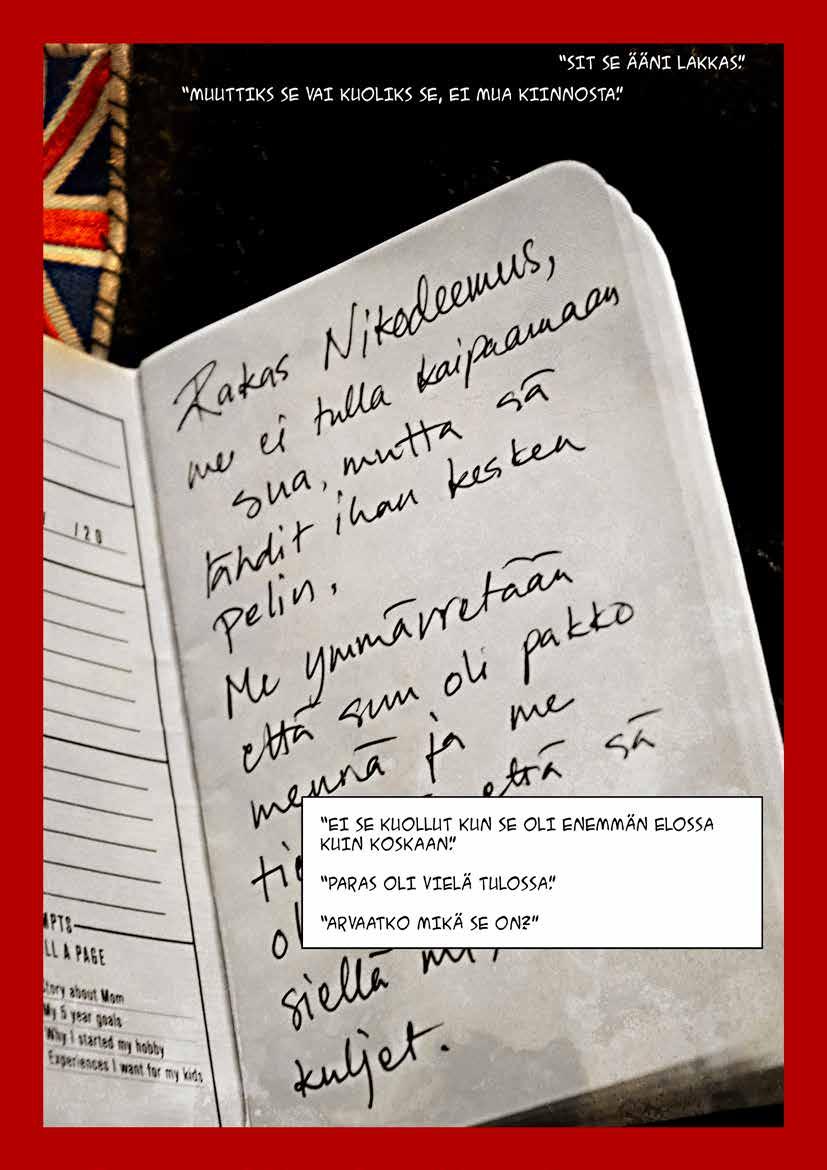 "SIT SE ÄÄNI LAKKAS."
"MUUTTIKS SE VAI KUOLIKS SE, EI MUA KIINNOSTA."
Rakas Nikodeemus,
me ei tulla kaipaamaan
sua, mutta sä
lähdit ihan kesken
pelin.
Me ymmärretään
että sun oli pakko
mennä ja me
että sä
siellä
kuljet.
"EI SE KUOLLUT KUN SE OLI ENEMMÄN ELOSSA
KUIN KOSKAAN."
"PARAS OLI VIELÄ TULOSSA."
"ARVAATKO MIKÄ SE ON?"
/20
MPTS
LL A PAGE
tory about Mom
My 5 year goals
Why I started my hobby
Experiences I want for my kids